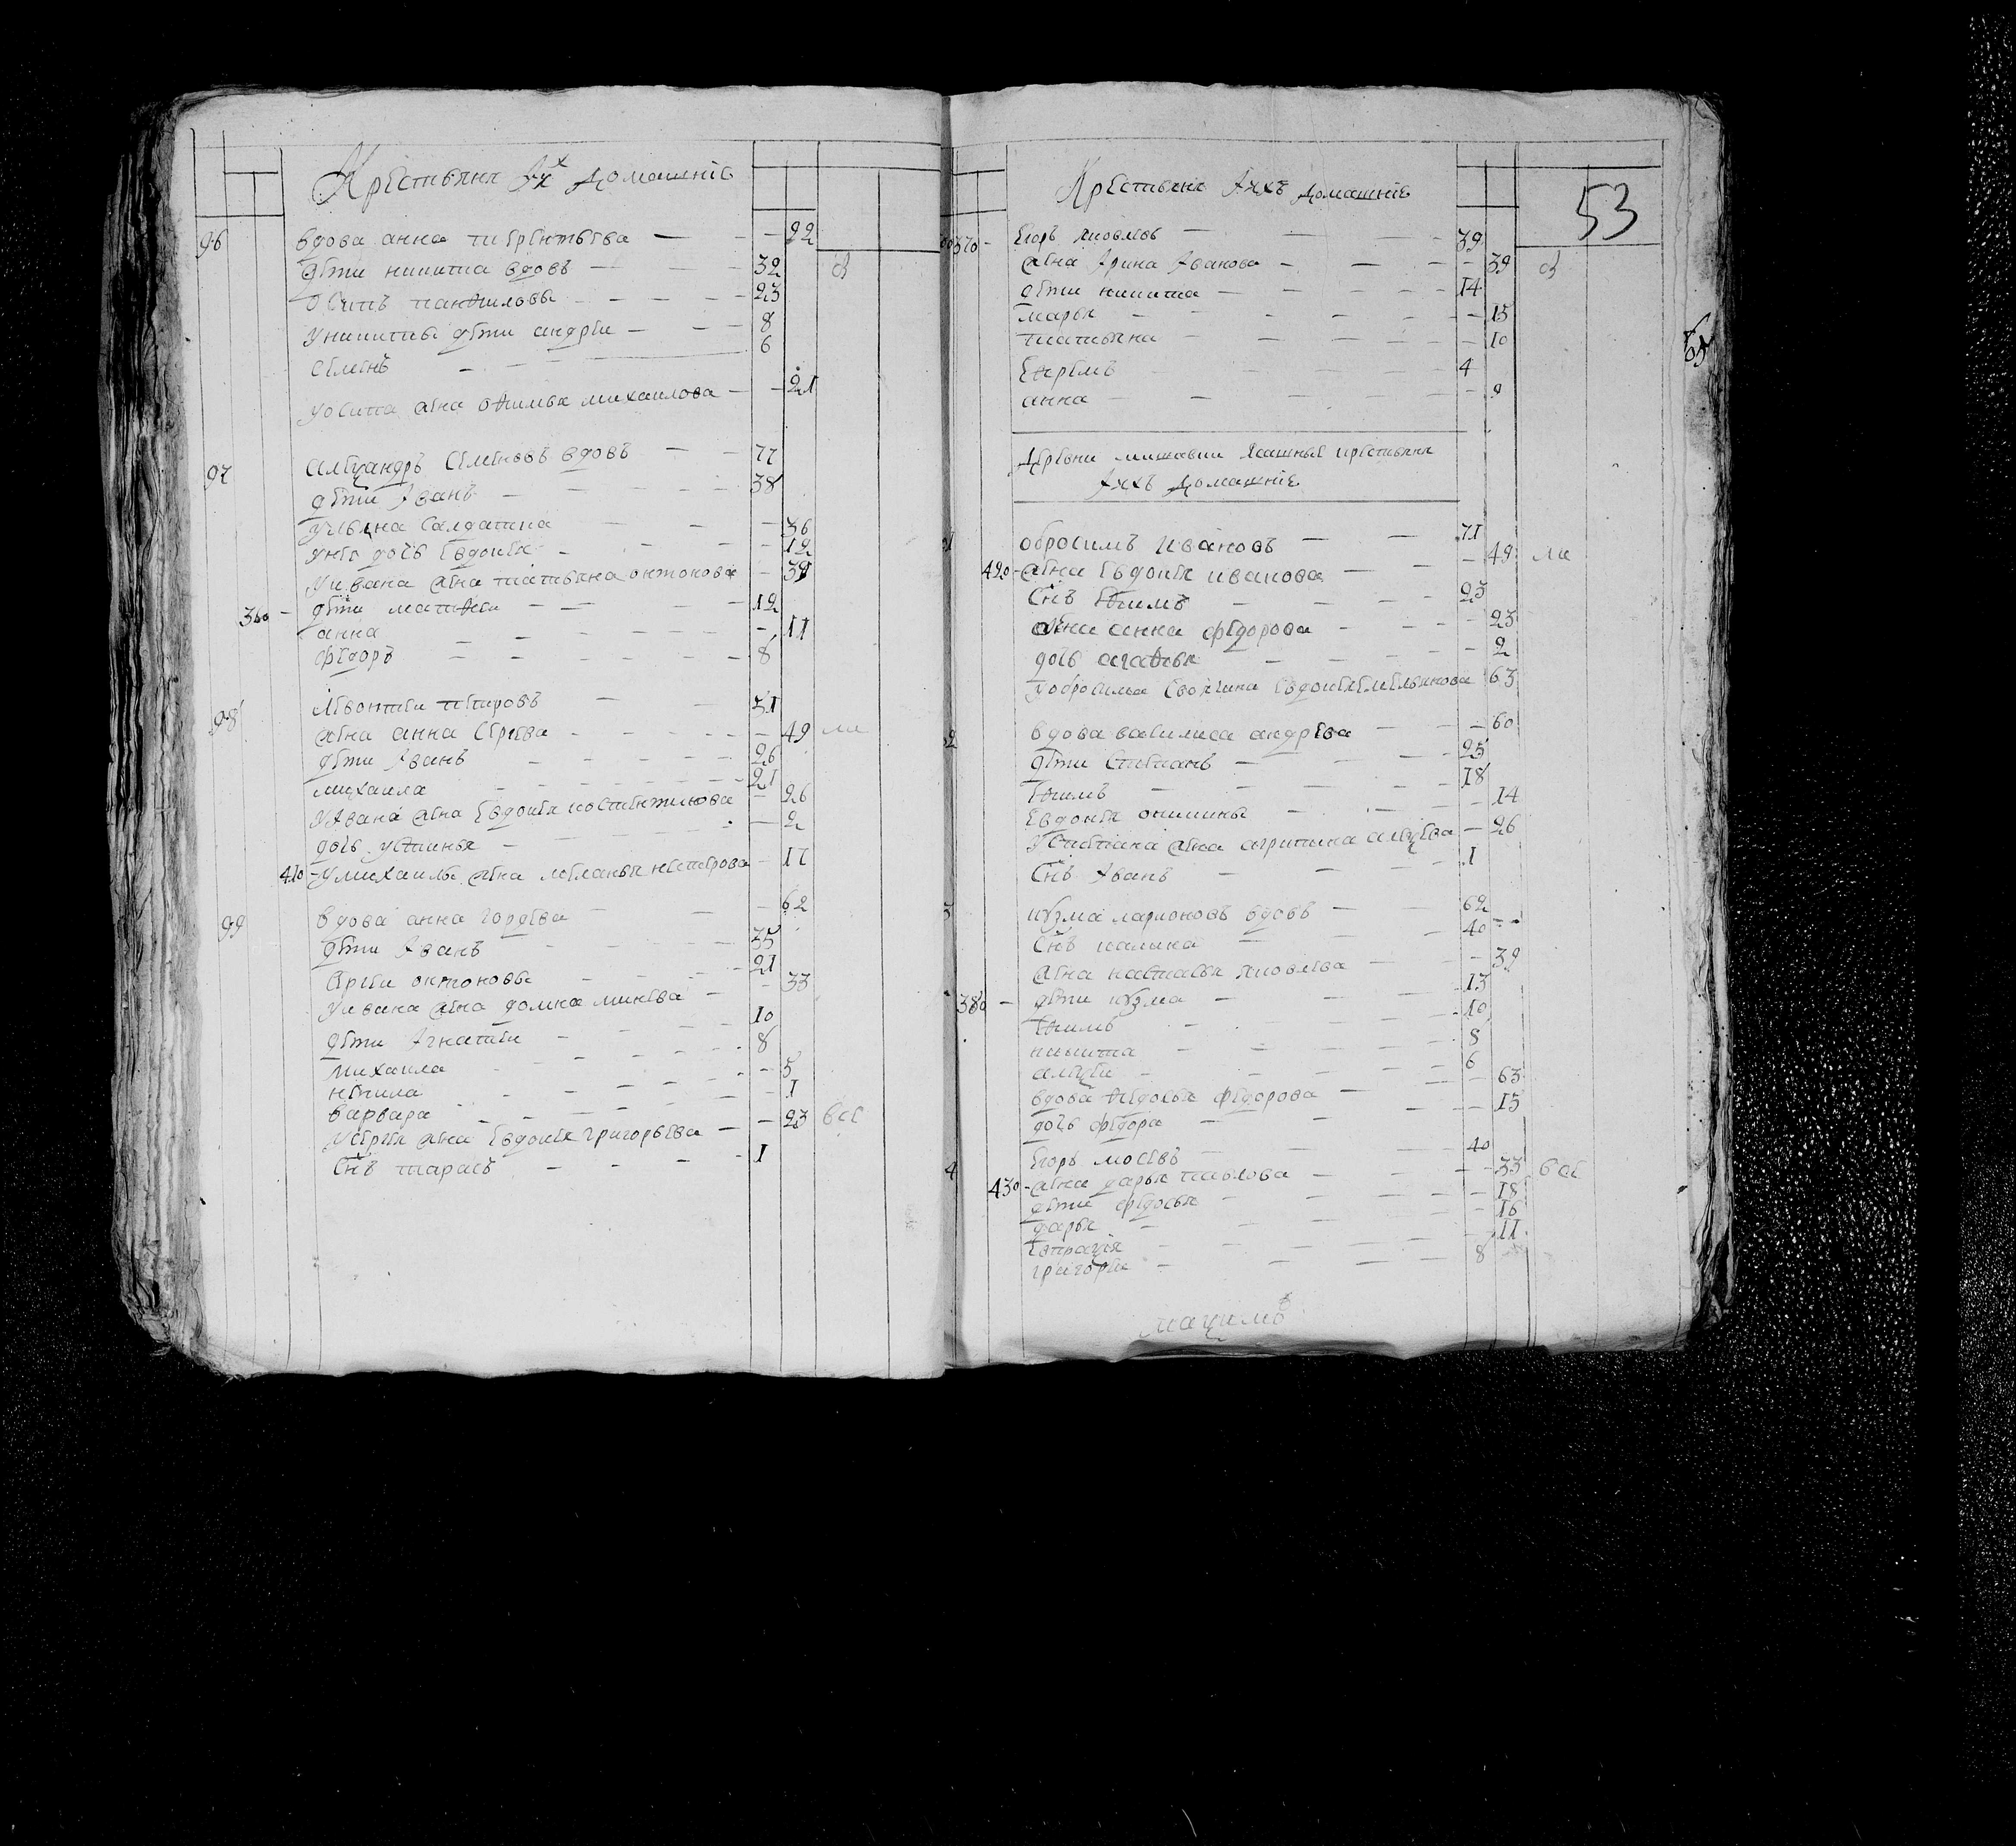 Крестьяня Ихъ домашнıе
96 вдова анна терентьева 22
дѣти никита вдовъ 32
осипъ панѳиловы 23
у никиты дѣти андреи 8
семенъ 6
у осипа жена оѳимья михаилова 21
97 алеѯандръ семеновъ вдовъ 77
дѣти Iванъ 38
ульяна салдатка 36
у нее дочь евдокѣя 12
у ивана жена татьяна онтонова 39
360 дѣти матѳеи 12
анна 11
ѳедоръ 8
98 леонтеи петровъ 51
жена анна сергева 49
дѣти Iванъ 26
михаила 21
у Iвана жена евдокѣя костентинова 26
дочь устинья 2
410 у михаилы жена меланья нестерова 17
99 вдова анна гордева 62
дѣти Iванъ 35
сргеи онтоновы 21
у ивана жена домна минева 33
дѣти Iгнатеи 10
михаила 8
ненила 5
варвара 1
у сергея жена евдокѣя григорьева 23
снъ тарасъ 1
Крестьяня Iихъ домашнıе
53
370 егоръ яковлевъ 39
жена Iрина Iванова 39
дѣти никита 14
марья 15
татьяна 10
еѳремъ 4
анна 2
Деревни мишавки ясашные крестьяня
Iихъ домашнıе
обросимъ ивановъ 71
420 жена евдокѣя иванова 49
снъ еѳимъ 23
жена анна федорова 23
дочь агаѳья 2
у обросима своячина евдокѣя емельянова 63
2 вдова василиса андрева 60
дѣти степанъ 25
еѳимъ 18
евдокѣя окимины 14
у степана жена агрипина алеѯева 26
снъ Iванъ 1
3 кузма ларионовъ вдовъ 62
снъ калина 40
жена настасья яковлева 39
380 дѣти кузма 13
еѳимъ 10
никита 8
алеѯеи 6
вдова ѳедосья федорова 63
дочь федора 15
4 егоръ мосѣвъ 40
430 жена дарья павлова 33
дѣти федосья 18
дарья 16
епраѯия 11
григореи 8
маѯимъ